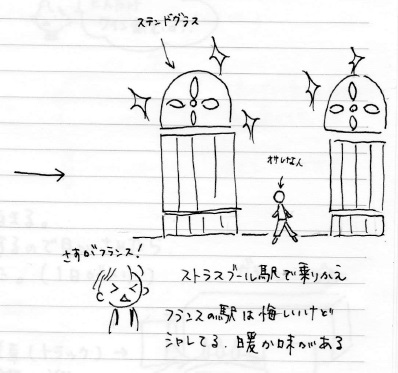 ステンドグラス
オサレな人
さすがフランス！
ストラスブール駅で乗りかえ
フランスの駅は悔しいけど
シャレてる、暖か味がある